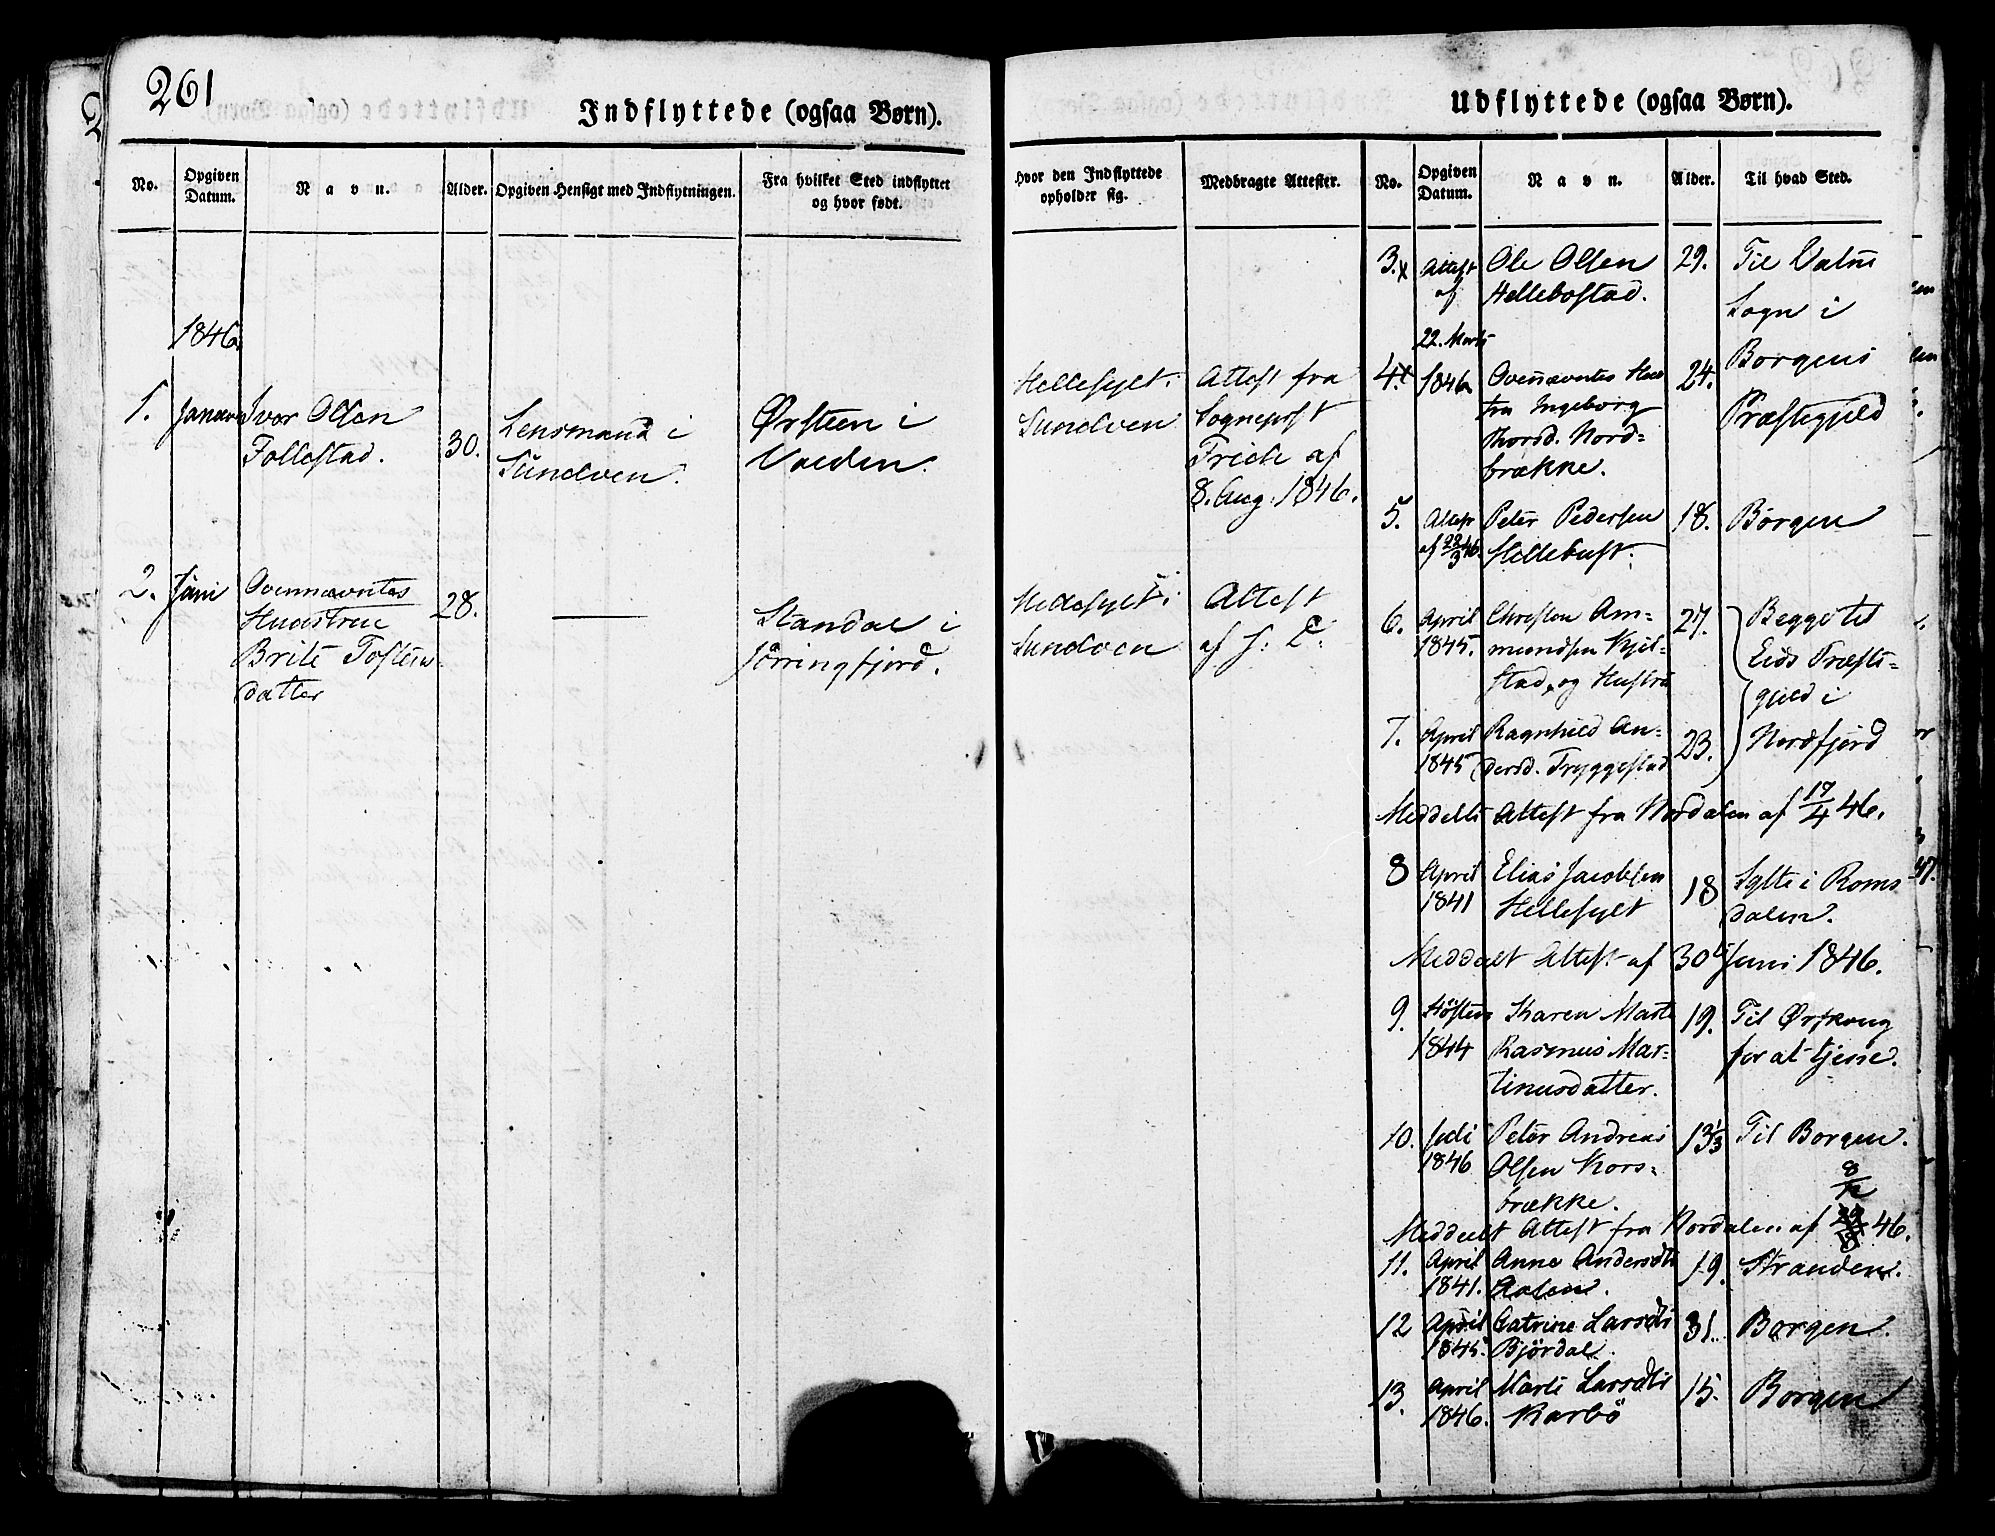 261
Indflyttede (ogsaa Børn).
No.
Opgiven Datum.
Navn.
Alder.
Opgiven Hensigt med Indflytningen.
Fra hvilket Sted indflyttet og hvor født.
1846.
1. Januar Ivar Olsen
Follestad.
30.
Lensmand i
Sundven.
Ørsteen i
Volden.
2. Juni Ovennævntes
Huustrue
Brite Tostens-
datter
28.
Standal i
Jörringfjord.
Udflyttede (ogsaa Børn).
Hvor den Indflyttede opholder sig.
Medbragte Attester.
No.
Opgiven Datum.
Navn.
Alder.
Til hvad Sted.
Hellesylt i
Sundven
Attest fra
Sogneprst
Frich af
8. Aug. 1846.
Hellesylt i
Sundven
Attest
af f: D.
3. Attest
af
22. Marts
1846
Ole Olsen
Hellebostad.
29.
Til Vatne
Sogn i
Borgens
Præstegjeld
4. Ovennævntes Hus
tru Ingeborg
Thorsd. Nord-
brække.
24.
5. Attest
af 22/3 46.
Peter Pedersen
Hellebust.
18. Borgen
6. April
1845.
Christen Am-
mundsen Kjel-
stad, og Hustru
27.
Begge til
Eids Præste-
gjeld i
Nordfjord
7. April
1845
Ragnhild An-
dersd. Tryggestad
23.
Meddelt Attest fra Nordalen af 17/4 46.
8 April
1841
Elias Jacobsen
Hellesylt
18
Sylte i Roms
dalen.
Meddelt Attest af 30 Juni 1846.
9. Høsten
1844
Karen Marte
Rasmus Mar-
tinusdatter.
19.
Til Ørskoug
for at tjene.
10. Juli
1846
Peter Andreas
Olsen Kors-
brække.
13 1/3
Til Borgen.
Meddeelt Attest fra Nordalen af 8/12 46.
11. April
1841.
Anne Andersdtr
19. Stranden.
12 April
1845.
Catrine Larsdtr
Bjørdal.
31. Borgen.
13. April
1846.
Marte Larsdtr
Karbö
15. Borgen